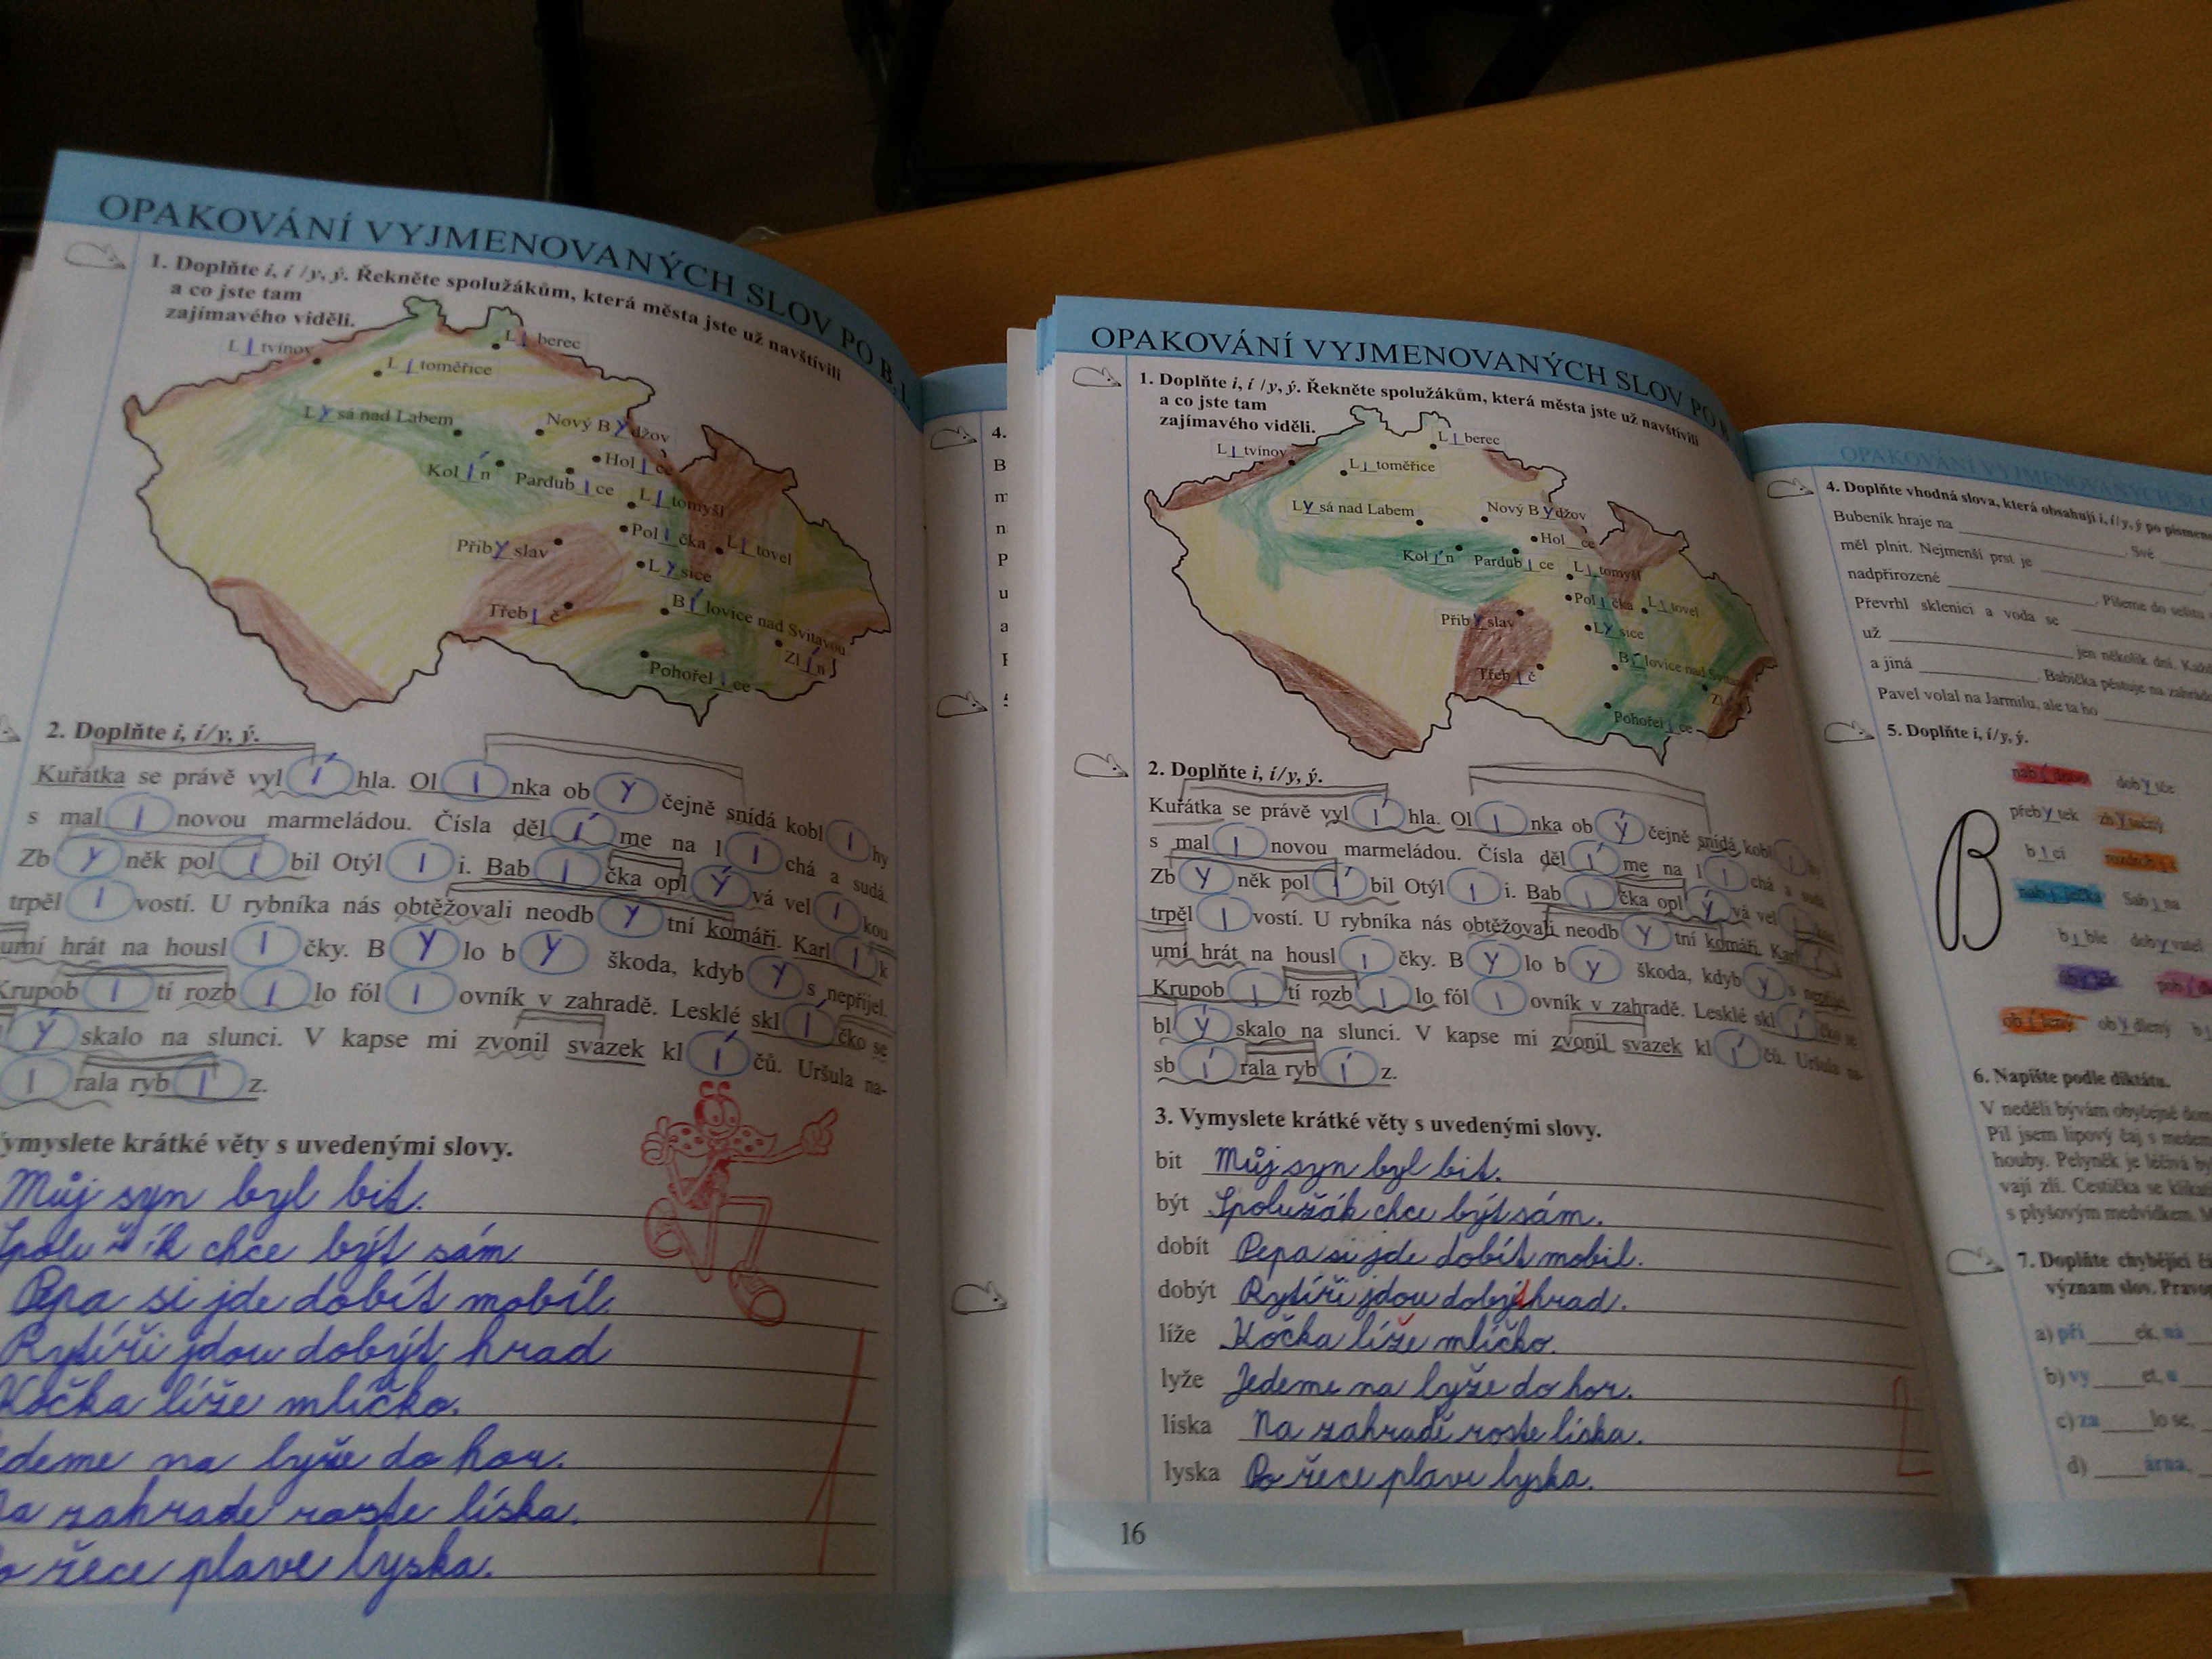 OPAKOVÁNÍ VYJMENOVANÝCH SLOV PO B, L
1. Doplňte i, í / y, ý. Řekněte spolužákům, která města jste už navštívili
a co jste tam
zajímavého viděli.
Litvínov
Liberec
Litoměřice
Lysá nad Labem
Nový Bydžov
Holice
Kolín
Pardubice
Litomyšl
Polička
Litovel
Přibyslav
Lysice
Třebíč
Bílovice nad Svitavou
Zlín
Pohořelice
2. Doplňte i, í/y, ý.
Kuřátka se právě vylíhla. Olinka obyčejně snídá koblihy
s malinovou marmeládou. Čísla dělíme na lichá a sudá.
Zbyněk políbil Otýlii. Babička oplývá velikou
trpělivostí. U rybníka nás obtěžovali neodbytní komáři. Karlík
umí hrát na housličky. Bylo by škoda, kdybys nepřijel.
Krupobití rozbilo fóliovník v zahradě. Lesklé sklíčko se
ýskalo na slunci. V kapse mi zvonil svazek klíčů. Uršula na-
irala rybíz.
Vymyslete krátké věty s uvedenými slovy.
Můj syn byl bit.
chce být sám
Pepa si jde dobít mobíl.
Rytíři jdou dobýt hrad
Kočka líže mlíčko.
edeme na lyže do hor.
a zahrade roste líska.
o řece plave lyska.
4.
B
m
n
P
u
a
OPAKOVÁNÍ VYJMENOVANÝCH SLOV PO B
1. Doplňte i, í / y, ý. Řekněte spolužákům, která města jste už navštívili
a co jste tam
zajímavého viděli.
Litvínov
Liberec
Litoměřice
Lysá nad Labem
Nový Bydžov
Hol_ce
Kolín
Pardubice
Litomyšl
Polička
Litovel
Přibyslav
Lysice
Třebič
Bílovice nad Svitavou
Pohořelice
2. Doplňte i, í/y, ý.
Kuřátka se právě vylíhla. Olinka obýčejně snídá koblihy
s malinovou marmeládou. Čísla dělíme na lichá a sudá.
Zbyněk políbil Otýlii. Babička oplývá velikou
trpělivostí. U rybníka nás obtěžovali neodbytní komáři. Karlík
umí hrát na housličky. Bylo by škoda, kdybys nepřijel.
Krupobití rozbilo fóliovník v zahradě. Lesklé sklíčko se
blýskalo na slunci. V kapse mi zvonil svazek klíčů. Uršula na-
sbírala rybíz.
3. Vymyslete krátké věty s uvedenými slovy.
bít Můj syn byl bit.
být Spolužák chce být sám.
dobít Pepa si jde dobít mobil.
dobýt Rytíři jdou dobýt hrad.
líže Kočka líže mlíčko.
lyže Jedeme na lyže do hor.
líska Na zahradě roste líska.
lyska Po řece plave lyska.
2
16
OPAKOVÁNÍ VYJMENOVANÝCH SL
4. Doplňte vhodná slova, která obsahují i, í/y, ý po písmenu
Bubeník hraje na ____ . Své
měl plnit. Nejmenší prst je
nadpřirozené ____ . Píšeme do sešitu
Převrhl sklenici a voda se
už ____ jen několik dní. Každ
a jiná ____ . Babička pěstuje na zahrádc
Pavel volal na Jarmilu, ale ta ho
5. Doplňte i, í/y, ý.
B
dobytče
přebytek zbytečný
bicí
Sabina
bible dobyvatel
obydlený
6. Napište podle diktátu.
V neděli bývám obyčejně dom
Pil jsem lipový čaj s medem
houby. Pelyněk je léčivá by
vají zlí. Cestička se klikat
s plyšovým medvídkem. M
7. Doplňte chybějící č
význam slov. Pravop
a) pří____ek, ná
b) vy____et, u
c) za____lo se,
d) ____árna,